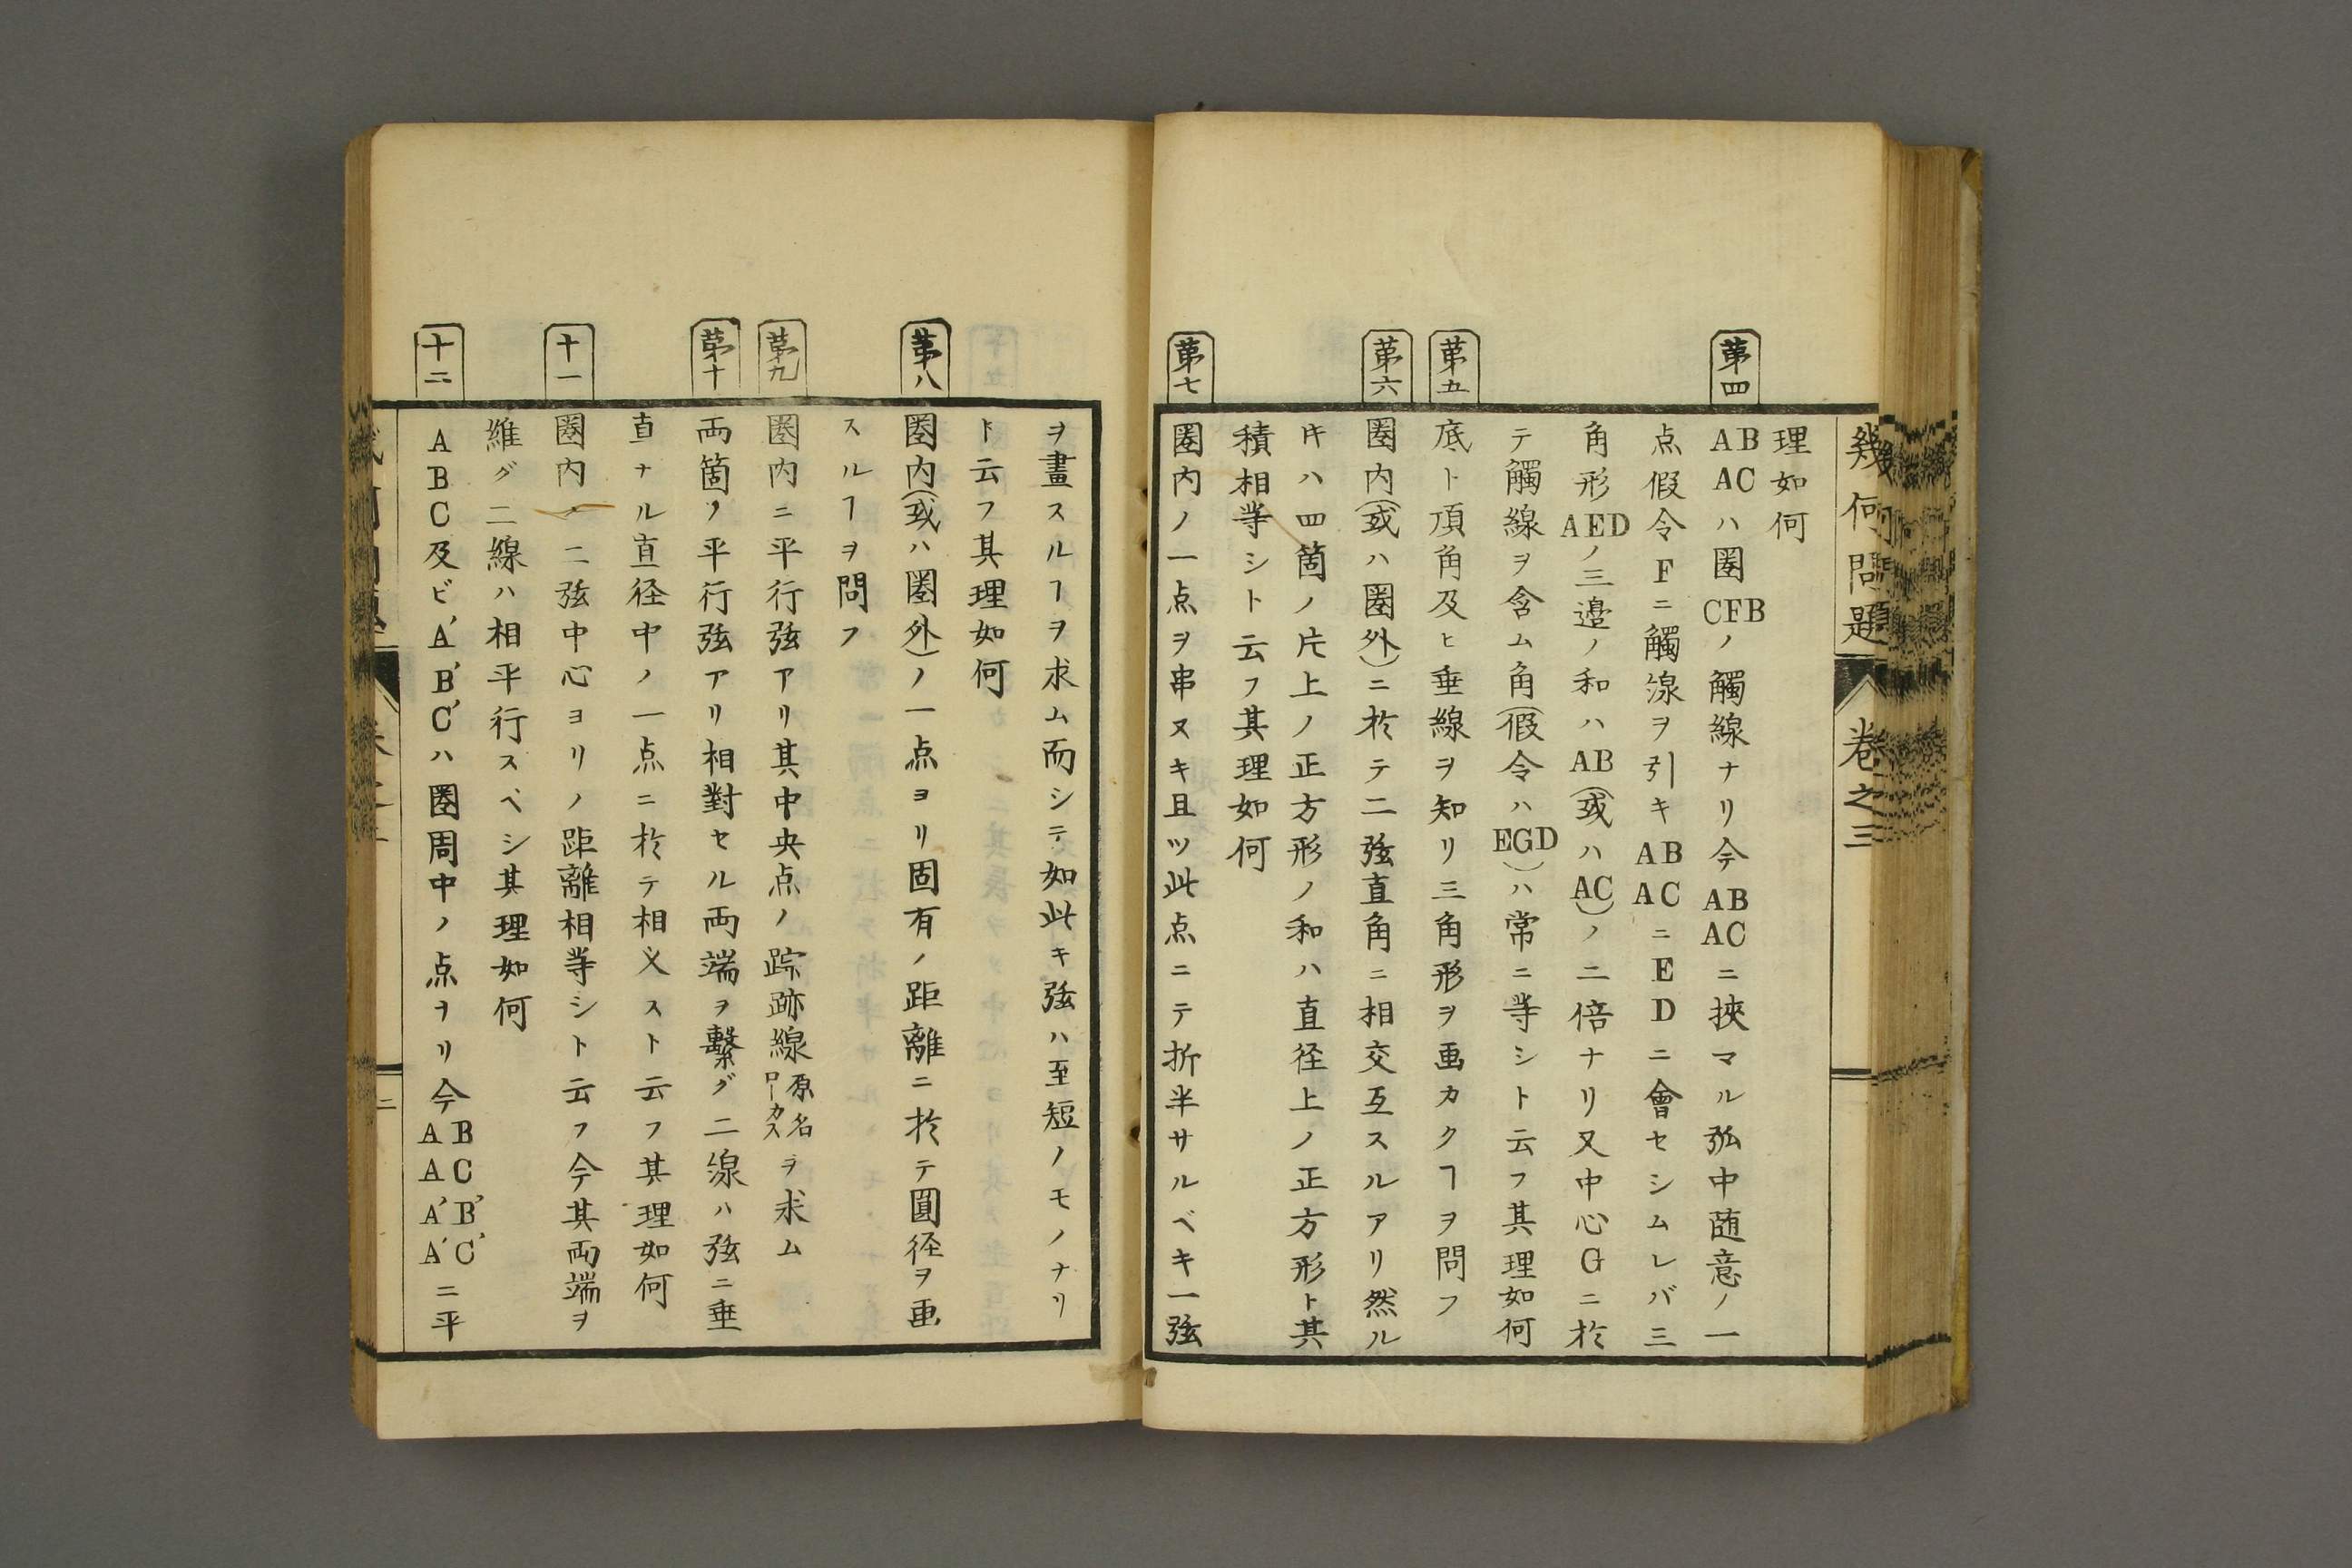 幾何問題 卷之三
理如何
第四
AB AC ハ圏 CFB ノ觸線ナリ今 AB AC ニ挾マル弧中随意ノ一
点假令 F ニ觸線ヲ引キ AB AC ニ E D ニ會セシムレバ三
角形 AED ノ三邉ノ和ハ AB(或ハ AC)ノ二倍ナリ又中心 G ニ於
テ觸線ヲ含ム角(假令ハ EGD)ハ常ニ等シト云フ其理如何
第五
底ト頂角及ヒ垂線ヲ知リ三角形ヲ画カクヿヲ問フ
第六
圏内(或ハ圏外)ニ於テ二弦直角ニ相交互スルアリ然ル
キハ四箇ノ片上ノ正方形ノ和ハ直径上ノ正方形ト其
積相等シト云フ其理如何
第七
圏内ノ一点ヲ串ヌキ且ツ此点ニテ折半サルベキ一弦
ヲ畫スルヿヲ求ム而シテ如此キ弦ハ至短ノモノナリ
ト云フ其理如何
第八
圏内(或ハ圏外)ノ一点ヨリ固有ノ距離ニ於テ圓径ヲ画
スルヿヲ問フ
第九
圏内ニ平行弦アリ其中央点ノ踪跡線原名ローカスヲ求ム
第十
両箇ノ平行弦アリ相對セル両端ヲ繋グ二線ハ弦ニ垂
直ナル直径中ノ一点ニ於テ相乂スト云フ其理如何
十一
圏内ノ二弦中心ヨリノ距離相等シト云フ今其両端ヲ
維グ二線ハ相平行スベシ其理如何
十二
A B C 及ビ A' B' C' ハ圏周中ノ点ナリ今 AB AC A'B' A'C' ニ平
二